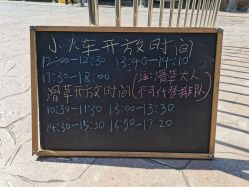 小火车开放时间
12:00-12:30 13:40-14:10
17:30-18:00 (注:滑草大人
滑草开放时间 不可代替排队)
10:30-11:30 13:00-13:30
14:30-15:30 16:50-17:20